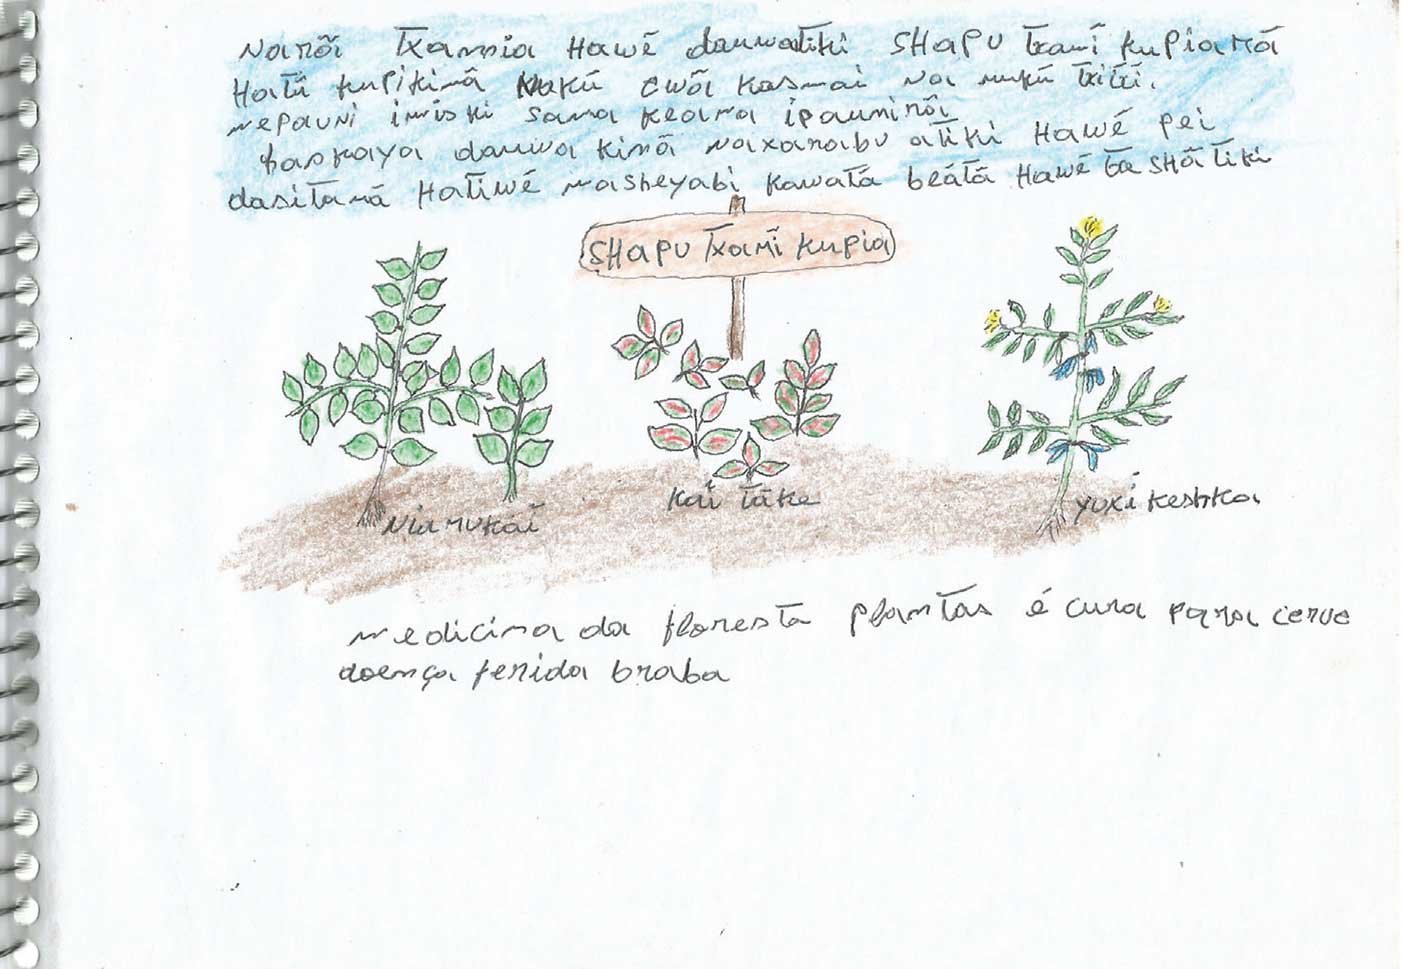 Narõi Txamia Hawẽ dauwatiki SHAPU txamĩ kupiamã
Hatũ kupikinã Nukũ ewõi kasmai na nukũ txitxi.
nepauni imiski sama keama ipauninõi
paskaya dauwa kinã naxarabu atiki Hawẽ pei
dasitamã Hatiwẽ masheyabi kawatã beátã Hawẽ ta shãtiki
SHAPU TxamĨ kupia
Nia mukaĨ
Kaĩ tãke
yuxi keshka
medicina da floresta plantas é cura para cerve
doença ferida braba